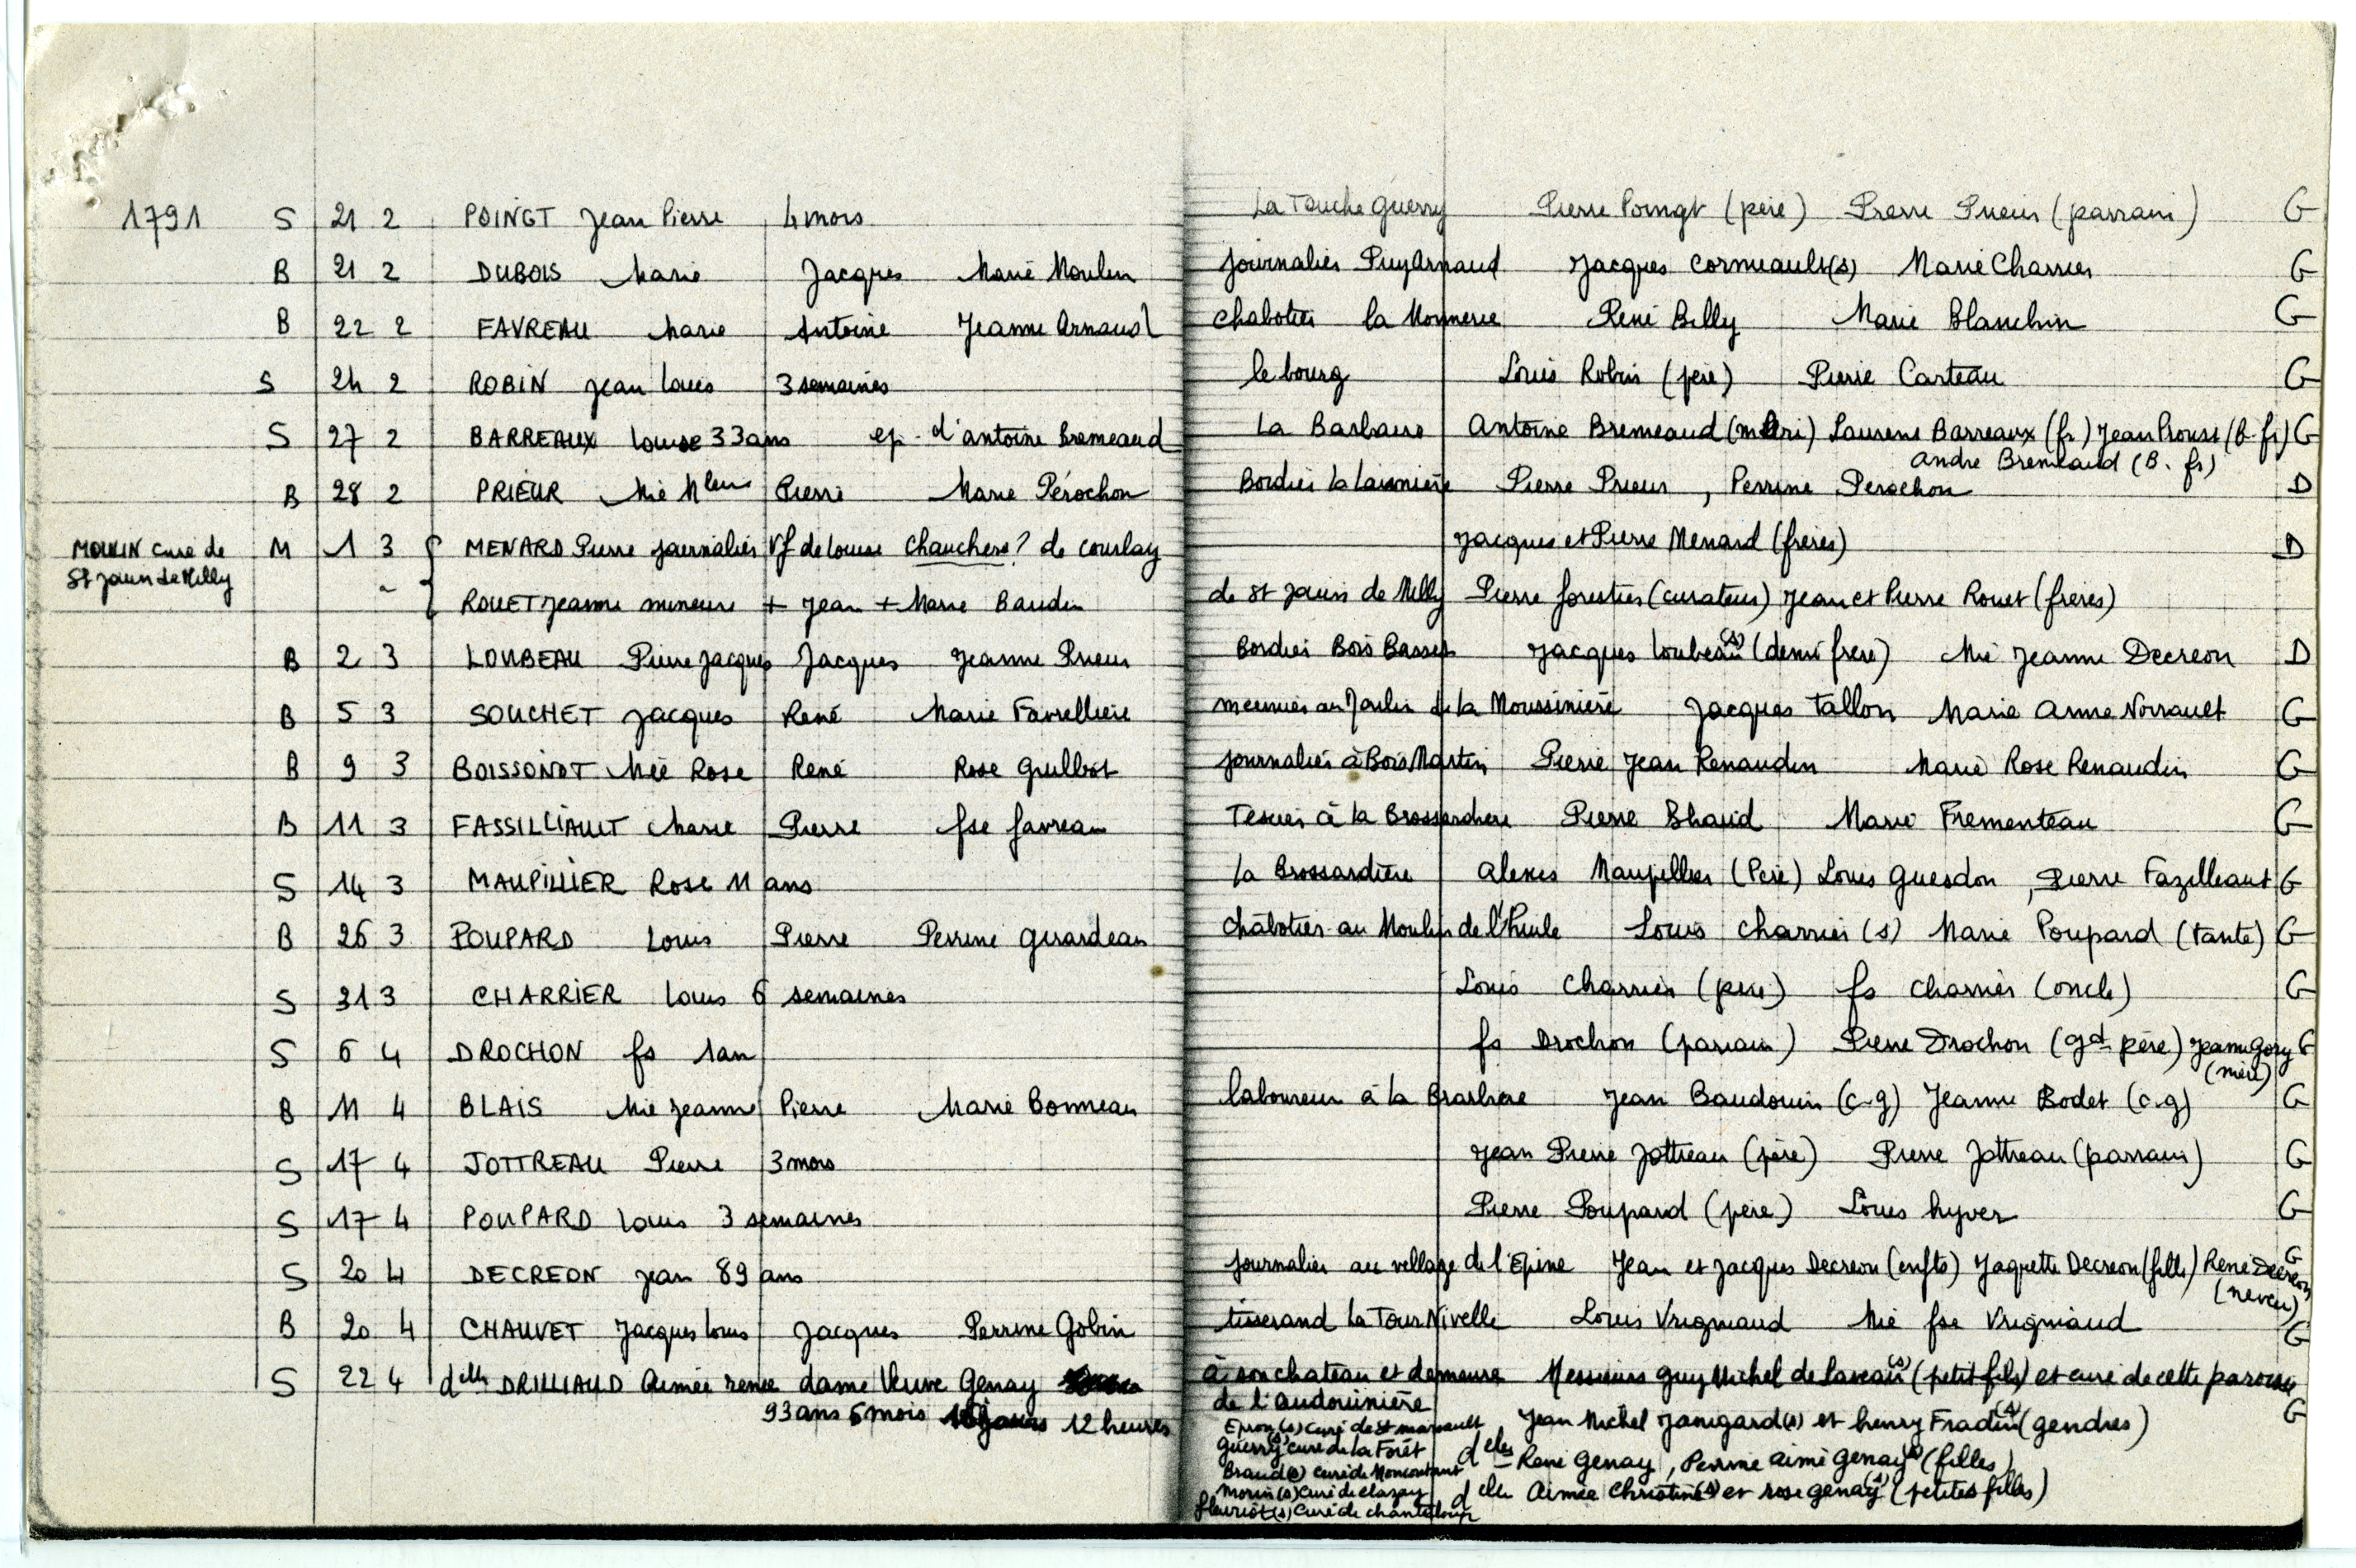 1791 S 21 2 POINGT Jean Pierre 4 mois La Touche Guerry Pierre Poingt (père) Pierre Prieur (parrain) G
B 21 2 DUBOIS Marie Jacques Marie Moulin journalier PuyArnaud Jacques Cormeault(s) Marie Charrier G
B 22 2 FAVREAU Marie Antoine Jeanne Arnaud chabotier la Monnerie René Billy Marie Blanchin G
S 24 2 ROBIN Jean Louis 3 semaines le bourg Louis Robin (père) Pierre Carteau G
S 27 2 BARREAUX Louise 33 ans ep. d'Antoine Bremeaud La Barbaire Antoine Bremeaud (mari) Laurent Barreaux (fr) Jean Proust (B.fr) G
Andre Bremeaud (B. fr)
B 28 2 PRIEUR Mie Pierre Marie Pérochon Bordier Pierre Prieur, Perrine Perochon D
MOULIN curé de M 1 3 { MENARD Pierre journalier Vf de Louise Chauchere? de Courlay Jacques et Pierre Menard (frères) D
St Jouin de Milly
{ ROUET Jeanne mineure + Jean + Marie Baudin de St Jouin de Milly Pierre forestier (curateur) Jean et Pierre Rouet (frères)
B 2 3 LOUBEAU Pierre Jacques Jacques Jeanne Prieur Bordier Bois Basset Jacques Loubeau(s) (demi frere) Mie Jeanne Decreon D
B 5 3 SOUCHET Jacques René Marie Favrelliere meunier au Moulin de la Moussinière Jacques Tallon Marie Anne Norrault G
B 9 3 BOISSONOT Mie Rose René Rose Guilbot journalier à Bois Martin Pierre Jean Renaudin Marie Rose Renaudin G
B 11 3 FASSILLIAULT Marie Pierre fse favreau Tessier à la Brossardiere Pierre Marie Frementeau G
S 14 3 MAUPILLIER Rose 11 ans la Brossardière Alexis Maupillier (Père) Louis Guesdon, Pierre Fazilleaut G
B 26 3 POUPARD Louis Pierre Perrine Girardeau chabotier au Moulin de l'huile Louis Charrier (s) Marie Poupard (tante) G
S 31 3 CHARRIER Louis 6 semaines Louis Charrier (père) fs Charrier (oncle) G
S 6 4 DROCHON fs 1an fs Drochon (parrain) Pierre Drochon (gd père) Jeanne Gory G
(mère)
B 11 4 BLAIS Mie Jeanne Pierre Marie Bonneau laboureur à la Jean Baudouin (c-g) Jeanne Bodet (c-g) G
S 17 4 JOTTREAU Pierre 3 mois Jean Pierre Jottreau (père) Pierre Jottreau (parrain) G
S 17 4 POUPARD Louis 3 semaines Pierre Poupard (père) Louis hyver G
S 20 4 DECREON Jean 89 ans journalier au village de l'Epine Jean et Jacques Decreon (enfts) Jaquette Decreon (fille) René Decreon G
(neveu)
B 20 4 CHAUVET Jacques Louis Jacques Perrine Gobin tisserand la Tour Nivelle Louis Vrigniaud Mie fse Vrigniaud G
S 22 4 delle DRILLIAUD Aimée renée dame Veuve Genay à son chateau et demeure Messieurs Guy Michel de (s) (petit fils) et curé de cette paroisse
de l'Audouinière G
93 ans 6 mois 12 heures Jean Michel (s) et henry Fradin(s) (gendres)
Epron (s) curé de St
Guerry(s) curé de la Forêt delles René Genay, Perrine Aimé Genay(s) (filles)
Braud(s) curé de Moncoutant
Morin(s) curé de Clazay delle Aimée Christine(s) et rose genay(s) (petites filles)
fleuriot(s) curé de chanteloup